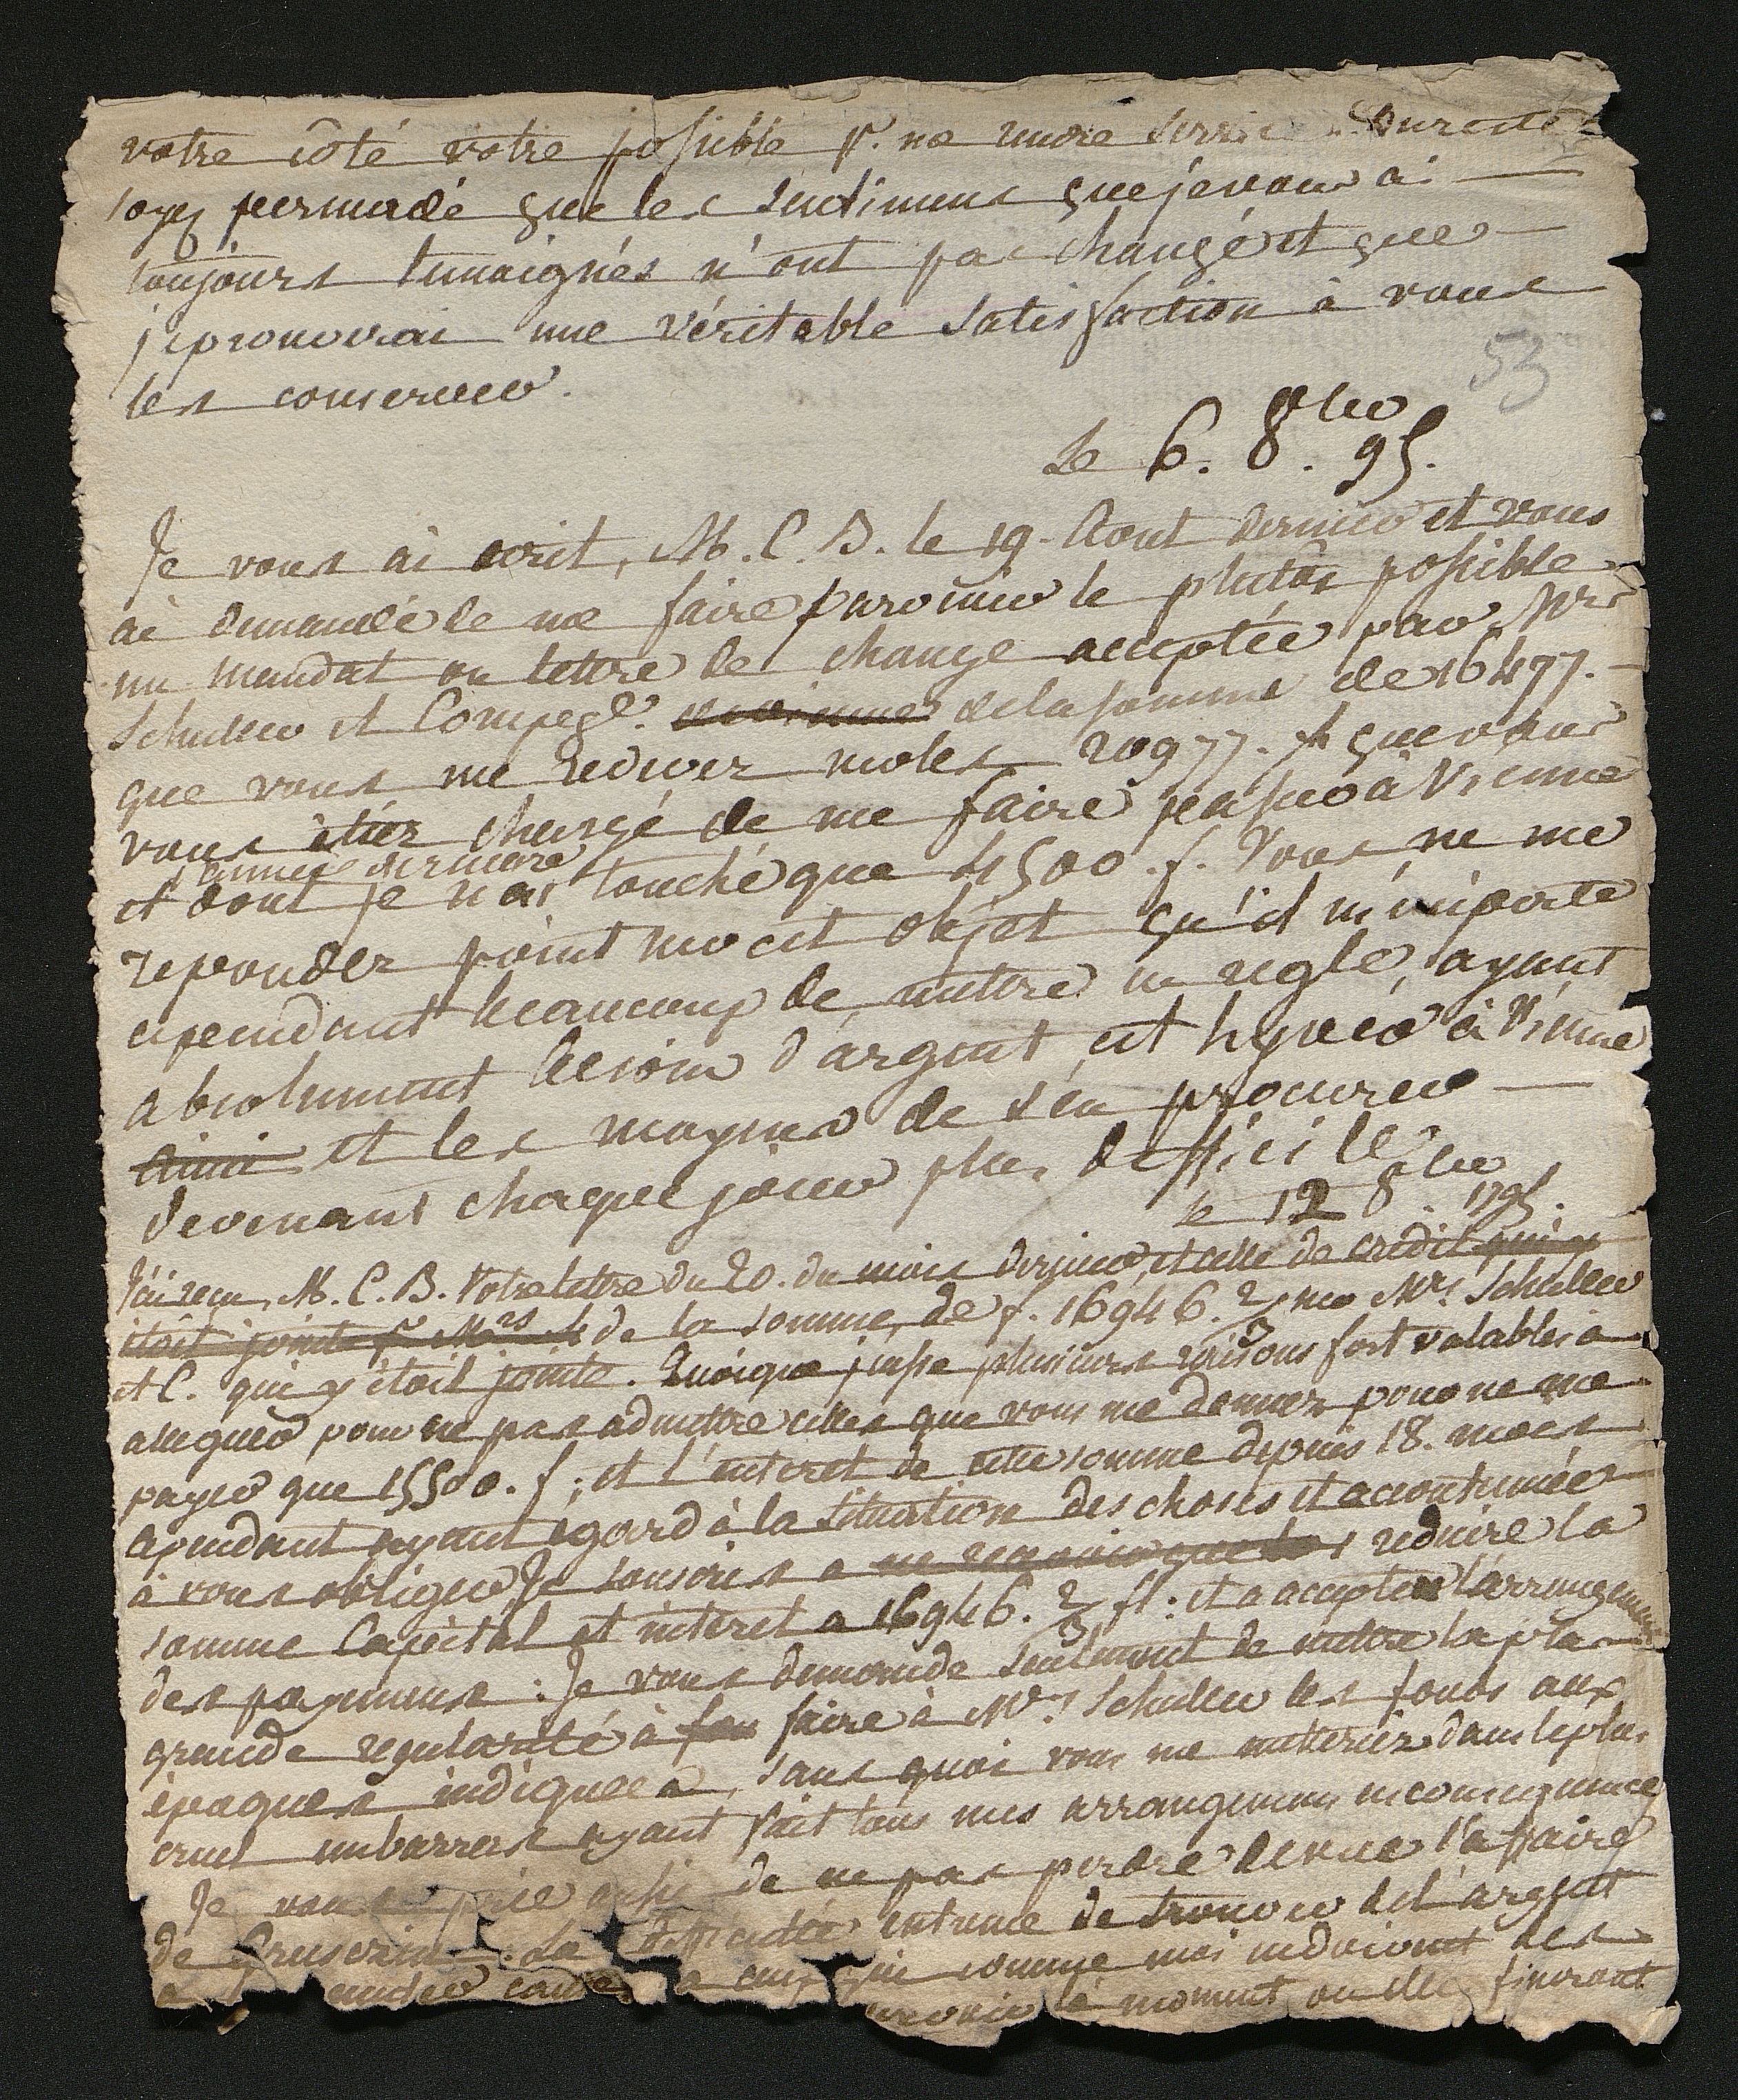 votre côté votre possible pr. me rendre service. Dureste
soyez persuadé que les sentimens que je vous ai
toujours temoignés n'ont pas changé et que
j'eprouverai une véritable satisfaction à vous
les conserver.
53
Le 6. 8bre 95.
Je vous ai ecrit, M. C. B. le 19. Aout dernier et vous
ai demandé de me faire parvenir le plutôt possible
un mandat ou lettre de change acceptée par Mrs
Schuller et Compagie. de la somme de 16477.
que vous me redevez sur les 20977. f que vous
vous étiez chargé de me faire passer à Vienne
l'année derniere
et dont je n'ai touché que 4500. f. Vous ne me
repondez point sur cet objet qu'il m'importe
cependant beaucoup de mettre en regle, ayant
absolument besoin d'argent cet hyver à Vienne
ainsi et les moyens de s'en procurer
devenant chaque jour plus difficile
le 12 8bre 1795.
J'ai reçu, M. C. B. Votre lettre du 20. du mois dernier, et celle de credit qui y
étoit jointe pr Mrs S de la somme de f. 16946. 2/3 sur Mrs Schuller
et C. qui y étoit jointe. Quoique j'eusse plusieurs raisons fort valables à
alleguer pour ne pas admettre celles que vous me donnez pour ne me
payer que 15500. f; et l'interet de cette somme depuis 18. mois
cependant ayant égard à la situation des choses et accoutumée
à vous obliger, Je souscris a reduire la
somme Capital et interet a 16946. 2/3 fl: et a accepter l'arrangement
des payemens: Je vous demande seulement de mettre la plus
grande regularité à fou faire à Mrs Schuller les fonds aux
époques indiquées, sans quoi vous me metteriez dans le plus
cruel embarras ayant fait tous mes arrangemens en consequence
Je vous prie aussi de ne pas perdre de vue l'affaire
de La difficulté extreme de trouver de l'argent
a cause a ceux qui comme moi
le moment ou elles finiront